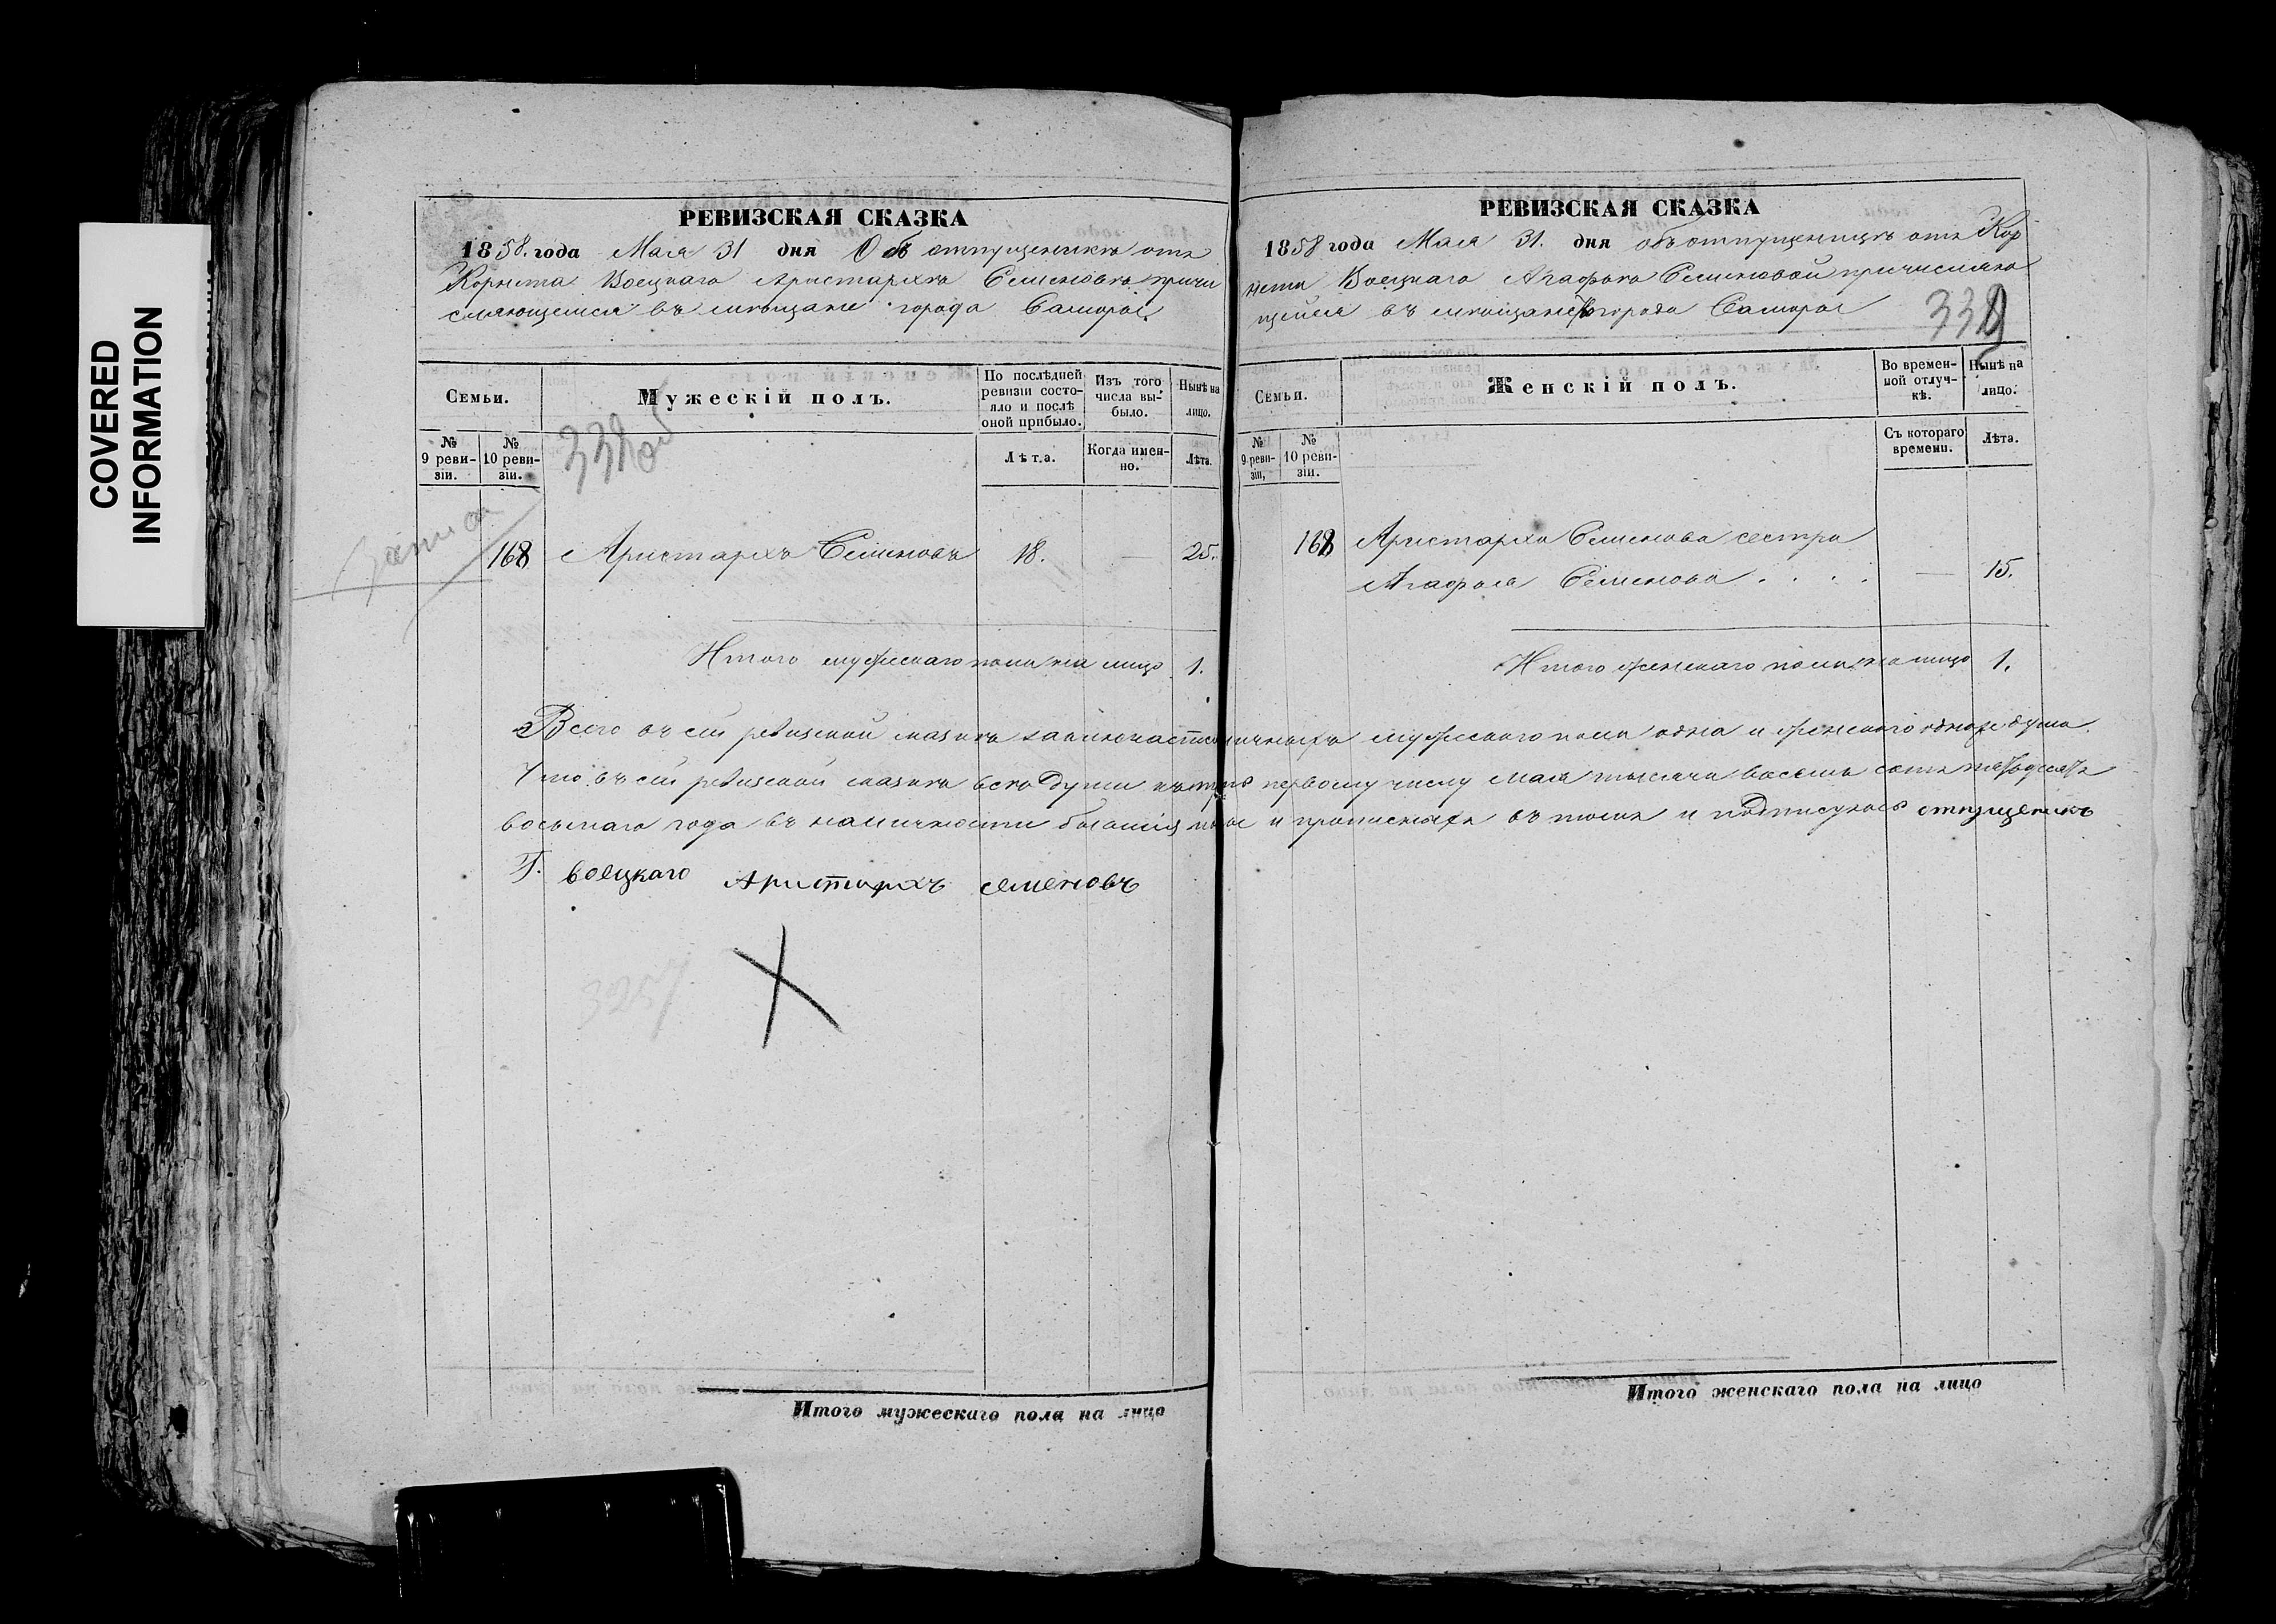 COVERED
INFORMATION
РЕВИЗСКАЯ СКАЗКА
1858. года Мая 31 дня Объ отпущеникѣ отъ
Корнета Воецкаго Аристархѣ Семеновѣ причи
сляющемся въ мѣщане города Самары.
Семьи.
Мужескій полъ.
По послѣдней ревизіи состояло и послѣ оной прибыло.
Изъ того числа выбыло.
Нынѣ на лицо.
№ 9 ревизіи.
№ 10 ревизіи.
Лѣта.
Когда именно.
Лѣта.
338 об
168 Аристархъ Семеновъ 18. — 25.
Итого мужескаго пола на лицо 1.
РЕВИЗСКАЯ СКАЗКА
1858 года Мая 31. дня объ отпущеницѣ отъ Кор
нета Воецкаго Агафьѣ Семеновой причисляю
щейся въ мѣщане города Самары
339
Семьи.
Женскій полъ.
Во временной отлучкѣ.
Нынѣ на лицо.
№ 9 ревизіи,
№ 10 ревизіи.
Съ котораго времени.
Лѣта.
168 Аристарха Семенова сестра
Агафья Семенова . . . . — 15.
Итого женскаго пола на лицо 1.
Всего въ сей ревизской сказкѣ наличныхъ мужескаго пола одна и женскаго одна же душа.
Что въ сей ревизской сказкѣ всѣ души первому числу мая тысяча восемь сотъ пятьдесятъ
восьмаго года въ наличности бывшія и прописныхъ въ томъ и подписуюсь отпущеникъ
Г. воецкаго Аристархъ семеновъ
3257
Итого мужескаго пола на лицо
Итого женскаго пола на лицо